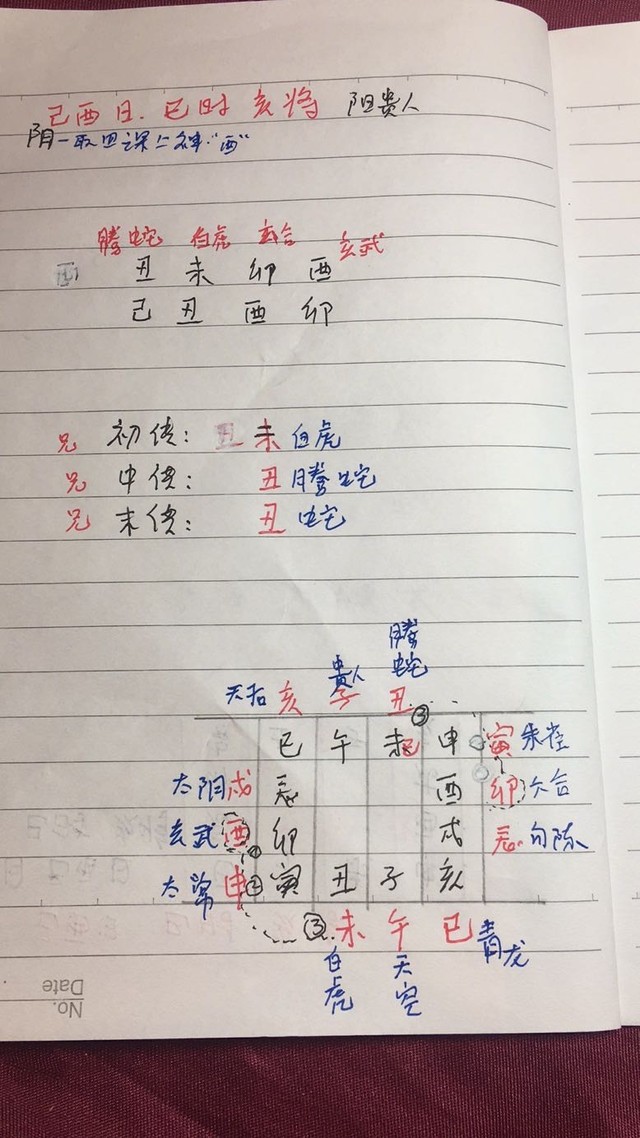 己酉日.巳时 亥将 阳贵人
阴一取四课上神"酉"
腾蛇 白虎 六合 玄武
丑 未 卯 酉
己 丑 酉 卯
兄 初传: 丑 未 白虎
兄 中传: 丑 腾蛇
兄 末传: 丑 蛇
腾蛇
贵人
天后 亥 子 丑
③
巳 午 未 申 寅 朱雀
太阴 戌 辰 酉 卯 六合
玄武 酉 卯 戌 辰 句陈
太常 申 寅 丑 子 亥
③ 未 午 巳 青龙
白虎 天空
No.
Date